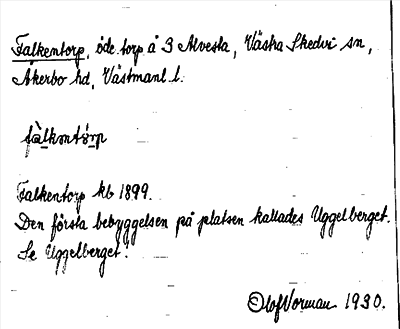 Falkentorp, öde torp å S Alvesta, Västra Skedvi sn,
Åkerbo hd, Västmanl l.
Falkentorp kb 1899.
Den första bebyggelsen på platsen kallades Uggelberget.
Se Uggelberget.
Olof Norman 1930.